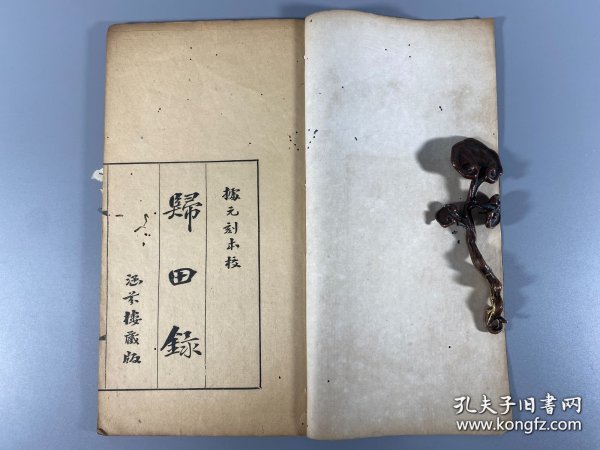 據元刻本校
歸田錄
涵芬樓藏版
孔夫子旧书网
www.kongfz.com